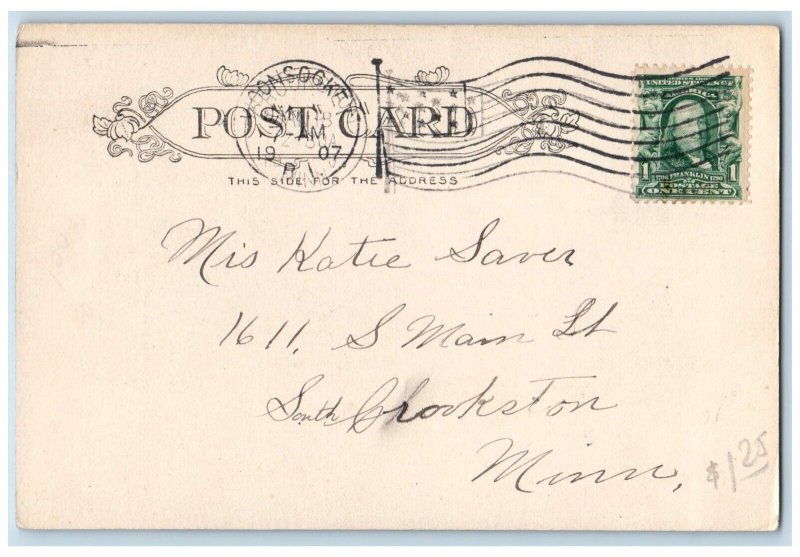 WOONSOCKET
19 07
R.I.
AM
POST CARD
THIS SIDE FOR THE ADDRESS
UNITED STATES OF
AMERICA
1 1706 FRANKLIN 1790 1
POSTAGE
ONE CENT
Mis Katie Saver
1611, S Main St
South Crookston
Minn,
$1 25